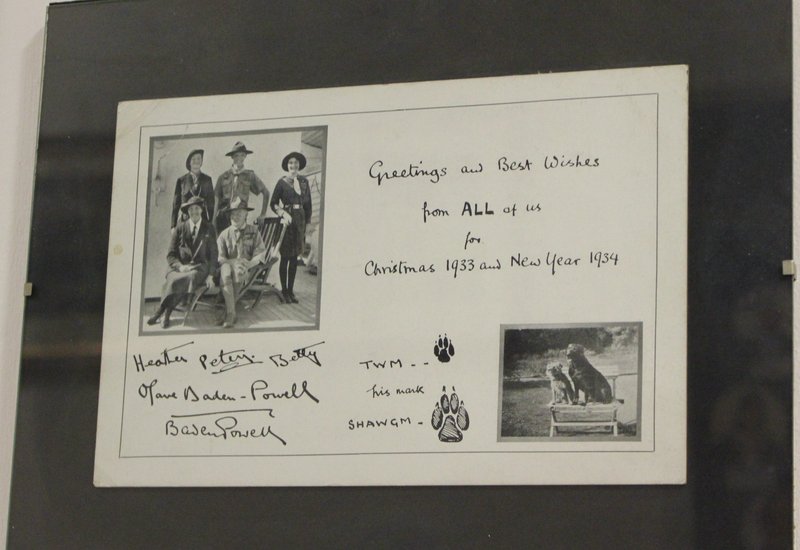 Greetings and Best Wishes
from ALL of us
for
Christmas 1933 and New Year 1934
Heather Peter. Betty
Olave Baden-Powell
Baden Powell
TWM - -
his mark
SHAWGM -